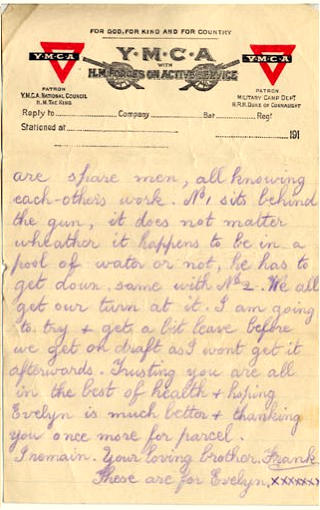 FOR GOD, FOR KING AND FOR COUNTRY
Y·M·C·A
WITH
H.M. FORCES ON ACTIVE SERVICE
Y·M·C·A
Y·M·C·A
PATRON
Y.M.C.A. NATIONAL COUNCIL
H.M. THE KING
PATRON
MILITARY CAMP DEPT
H.R.H. DUKE OF CONNAUGHT
Reply to Company Bat Regt
Stationed at 191
are spare men, all knowing
each-others work. No 1 sits behind
the gun, it does not matter
wheather it happens to be in a
pool of water or not, he has to
get down, same with No 2. We all
get our turn at it. I am going
to try + get a bit leave before
we get on draft as I wont get it
afterwards. Trusting you are all
in the best of health + hoping
Evelyn is much better + thanking
you once more for parcel.
I remain. Your loving brother. Frank.
These are for Evelyn. xxxxxxx